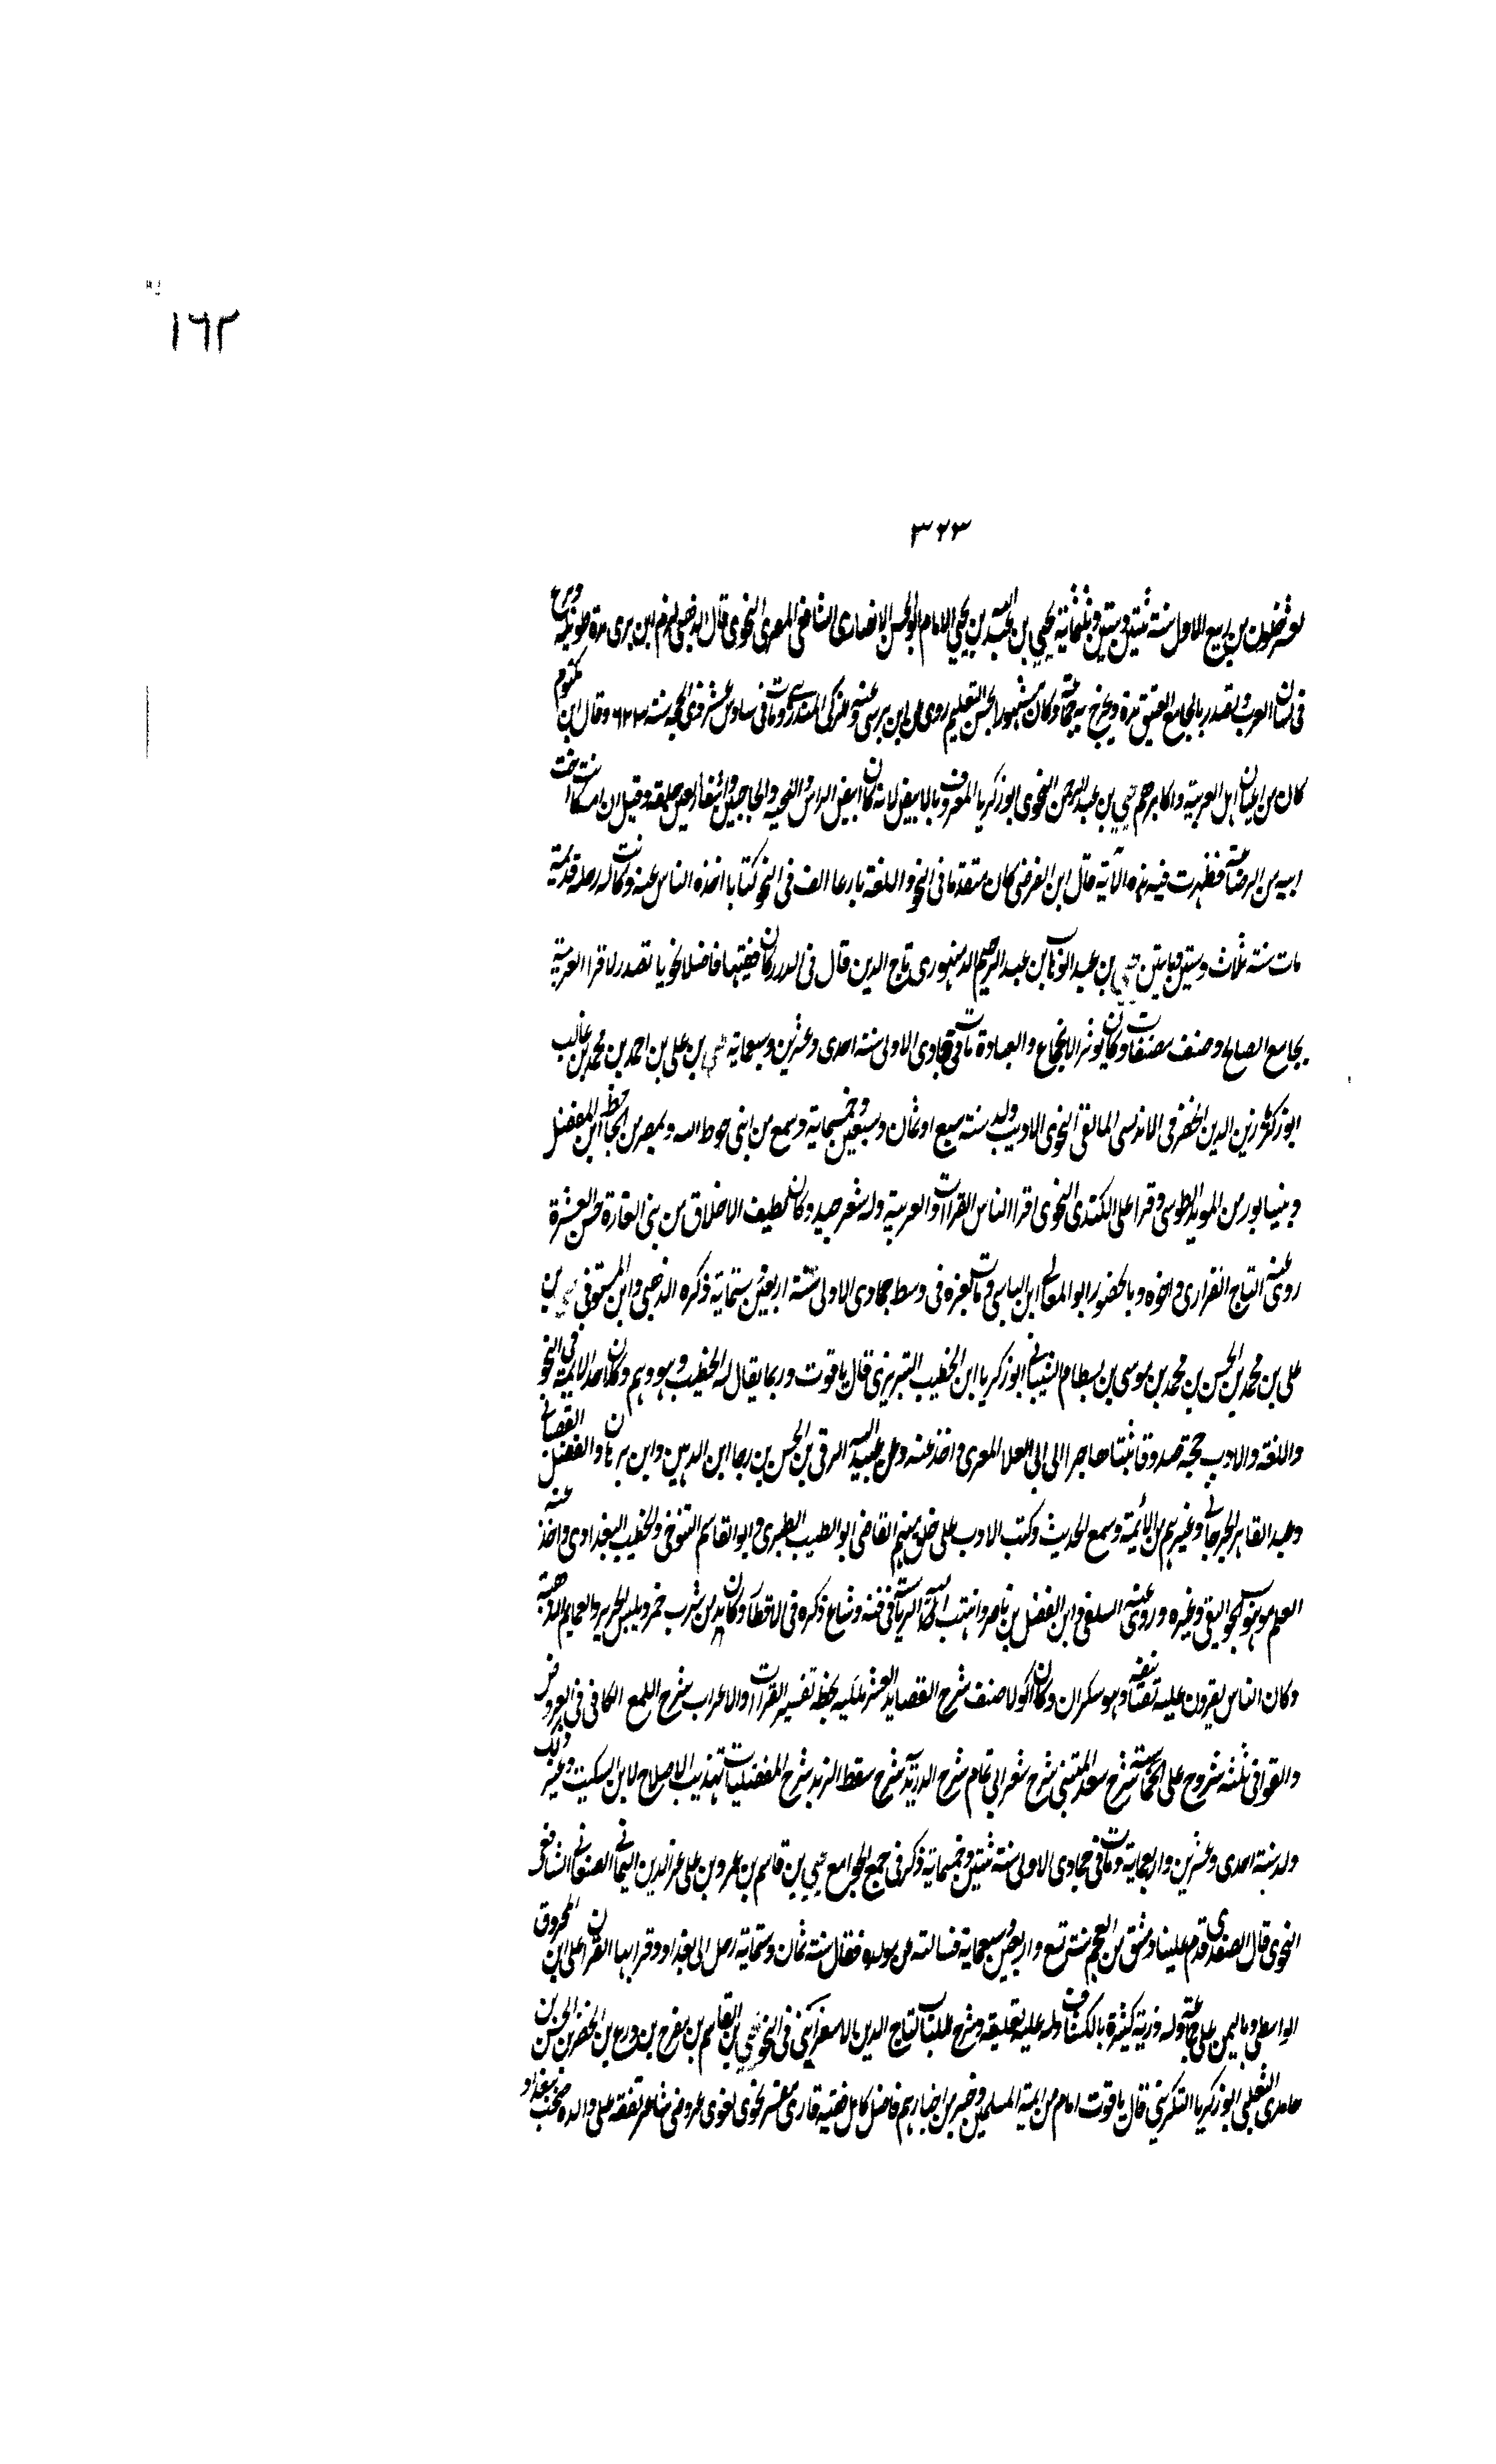 ١٦٢
٣٢٣
لعشر خلون من ربيع الاول سنة ثنتين وستين وثلثماية يحيى بن عبد الله بن يحيى الامام ابو الحسن الانصارى الشافعى المصرى النحوى قال الذهبى لزم ابن برى مدة طويلة وبرع
فى لسان العرب وتصدر بالجامع العتيق مدة وتخرج به جماعة وكان مشهورا بحسن التعليم روى عن ابن برى وعنه الزكى المنذرى ومات فى سادس عشر ذى الحجة سنة ٦٢٣ وقال ابن مكتوم
كان من اعيان اهل العربية واكابرهم يحيى بن عبد الرحمن النحوى ابو زكريا المعروف بالابيض لانه كان ابيض الراس واللحية والحاجبين واشفار العين خلقة وقيل ان امه كانت اخت
ابيه من الرضاعة فظهرت فيه هذه الآية قال ابن الفرضى كان متقدما فى النحو واللغة بارعا الف فى النحو كتابا اخذه الناس عنه وكانت له رحلة قديمة
مات سنة ثلاث وستين وماتين يحيى بن عبد الوهاب بن عبد الرحيم الدمنهورى تاج الدين قال فى الدرر كان فقيها فاضلا نحويا تصدر لاقرا العربية
بجامع الصالح وصنف مصنفات وكان يوثر الانجماع والعبادة مات فى جمادى الاولى سنة احدى وعشرين وسبعماية يحيى بن على بن احمد بن محمد بن غالب
ابو زكريا زين الدين الحضرمى الاندلسى المالقى النحوى الاديب ولد سنة سبع او ثمان وسبعين وخمسماية وسمع من ابنى حوط الله وبمصر من الحافظ ابن المفضل
وبنيسابور من المويد الطوسى وقرا على الكندى النحوى اقرا الناس القراات والعربية وله شعر جيد وكان لطيف الاخلاق من بنى القارة حسن العشرة
روى عنه التاج الفزارى واخوه وبالحضور ابو المعالى ابن البالسى ومات بغزه فى وسط جمادى الاولى سنة اربعين وستماية ذكره الذهبى وابن المستوفى يحيى بن
على بن محمد بن الحسن بن محمد بن موسى بن بسطام الشيبانى ابو زكريا ابن الخطيب التبريزى قال ياقوت وربما يقال له الخطيب وهو وهم وكان احد الايمة فى النحو
واللغة والادب حجة صدوقا ثبتا هاجر الى ابى العلا المعرى واخذ عنه وعن عبيد الله الرقى بن الحسن بن رجا ابن الدهان وابن برهان والفضل القصبانى
وعبد القاهر الجرجانى وغيرهم من الائمة وسمع الحديث وكتب الادب على خلق منهم القاضى ابو الطيب الطبرى وابو القاسم التنوخى والخطيب البغدادى واخذ عنه
العلم موهوب الجواليقى وغيره وروى عنه السلفى وابن الفضل بن ناصر وانتهت اليه الرياسة فى فنه وشاع ذكره فى الاقطار وكان يدمن شرب خمر ويلبس الحرير والعمايم المذهبة
وكان الناس يقرون عليه تصانيفه وهو سكران وكان اكولا صنف شرح القصايد العشر ملكيه بخطه تفسير القرآن والاعراب شرح اللمع الكافى فى العروض
والقوافى ثلثة شروح على الحماسة شرح شعر المتنبى شرح شعر ابى تمام شرح الدريدية شرح سقط الزند شرح المفضليات تهذيب الاصلاح لابن السكيت وغير ذلك
ولد سنة احدى وعشرين واربعماية ومات فى جمادى الاولى سنة ثنتين وخمسماية ذكر فى جمع الجوامع يحيى بن قاسم بن عمرو بن على عز الدين اليمانى الصنعانى الشافعى
النحوى قال الصفدى قدم علينا دمشق من العجم سنة تسع واربعين وسبعماية فسالته عن مولده فقال سنة ثمان وستماية رحل الى بغداد وقرا بها القرآن على ابن المحروق
الواسطى وباليمن على جماعة وله ذرية كثيرة بالكشاف وله عليه تعليقة وشرح اللباب لتاج الدين الاسفراينى فى النحو يحيى بن القاسم بن مفرح بن ورع بن الخضر بن الحسن بن
حامدى الثعلبى ابو زكريا التكريتى قال ياقوت امام من ايمة المسلمين وخبر من اخبارهم فاضل كامل فقيه قارى مفسر نحوى لغوى عروضى شاعر تفقه على والده صحب ببغداد